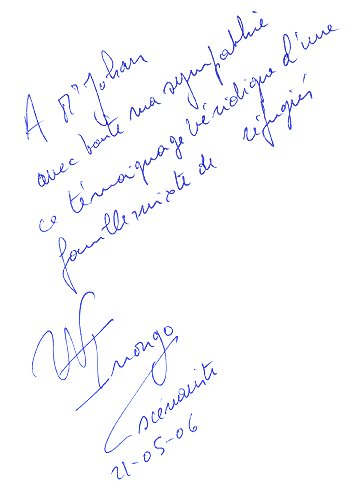 A Mr Johan
avec toute ma sympathie
ce témoignage véridique d'une
famille mixte de réfugiés
Inongo
scénariste
21-05-06